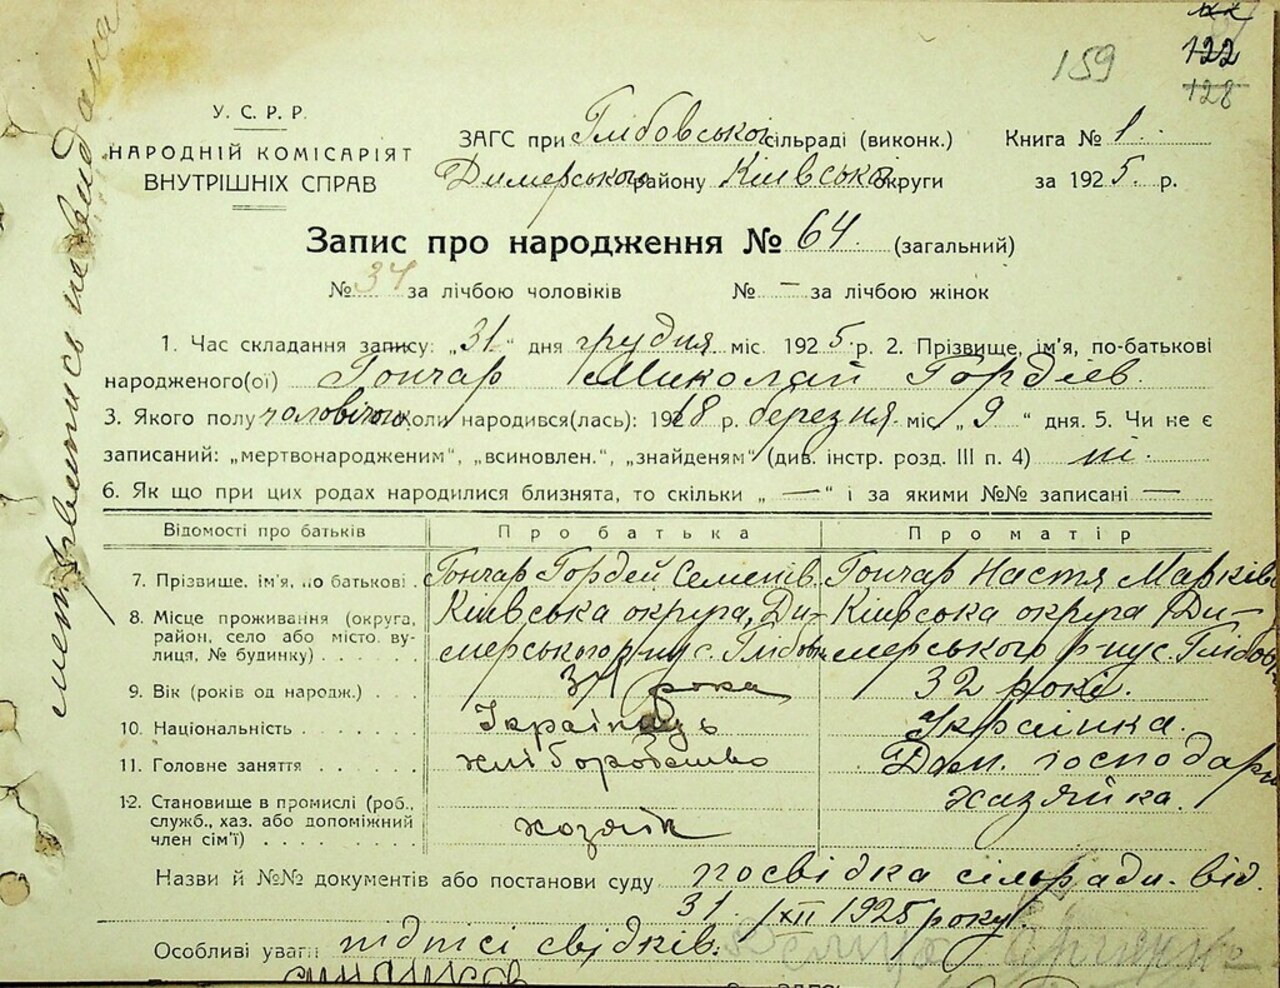 159
122
128
У. С. Р. Р.
НАРОДНІЙ КОМІСАРІЯТ
ВНУТРІШНІХ СПРАВ
ЗАГС при Глібовської сільраді (виконк.)
Димерського району Київської округи
Книга № 1.
за 1925. р.
Запис про народження № 64. (загальний)
№ 34 за лічбою чоловіків № — за лічбою жінок
1. Час складання запису: „31" дня грудня міс. 1925 р. 2. Прізвище, ім'я, по-батькові
народженого(ої) Гончар Миколай Гордіев.
3. Якого полу чоловічого коли народився(лась): 1918 р. березня міс. „9" дня. 5. Чи не є
записаний: „мертвонародженим", „всиновлен.", „знайденям" (див. інстр. розд. III п. 4) ні.
6. Як що при цих родах народилися близнята, то скільки „—" і за якими №№ записані —
Відомості про батьків Про батька Про матір
7. Прізвище, ім'я, по батькові Гончар Гордей Семенів. Гончар Настя Марків
8. Місце проживання (округа, Київська округа, Ди- Київська округа Ди-
район, село або місто, ву- мерського р-ну с. Глібовк мерського р-ну с. Глібовк
лиця, № будинку)
9. Вік (років од народж.) 34 рока 32 років.
10. Національність Українець Українка.
11. Головне заняття хліборобство Дом. господарк
12. Становище в промислі (роб., хазяйка.
служб., хаз. або допоміжний хозяїн
член сім'ї)
Назви й №№ документів або постанови суду посвідка сільради. від.
31. /XII 1925 року.
Особливі уваги підпісі свідків: